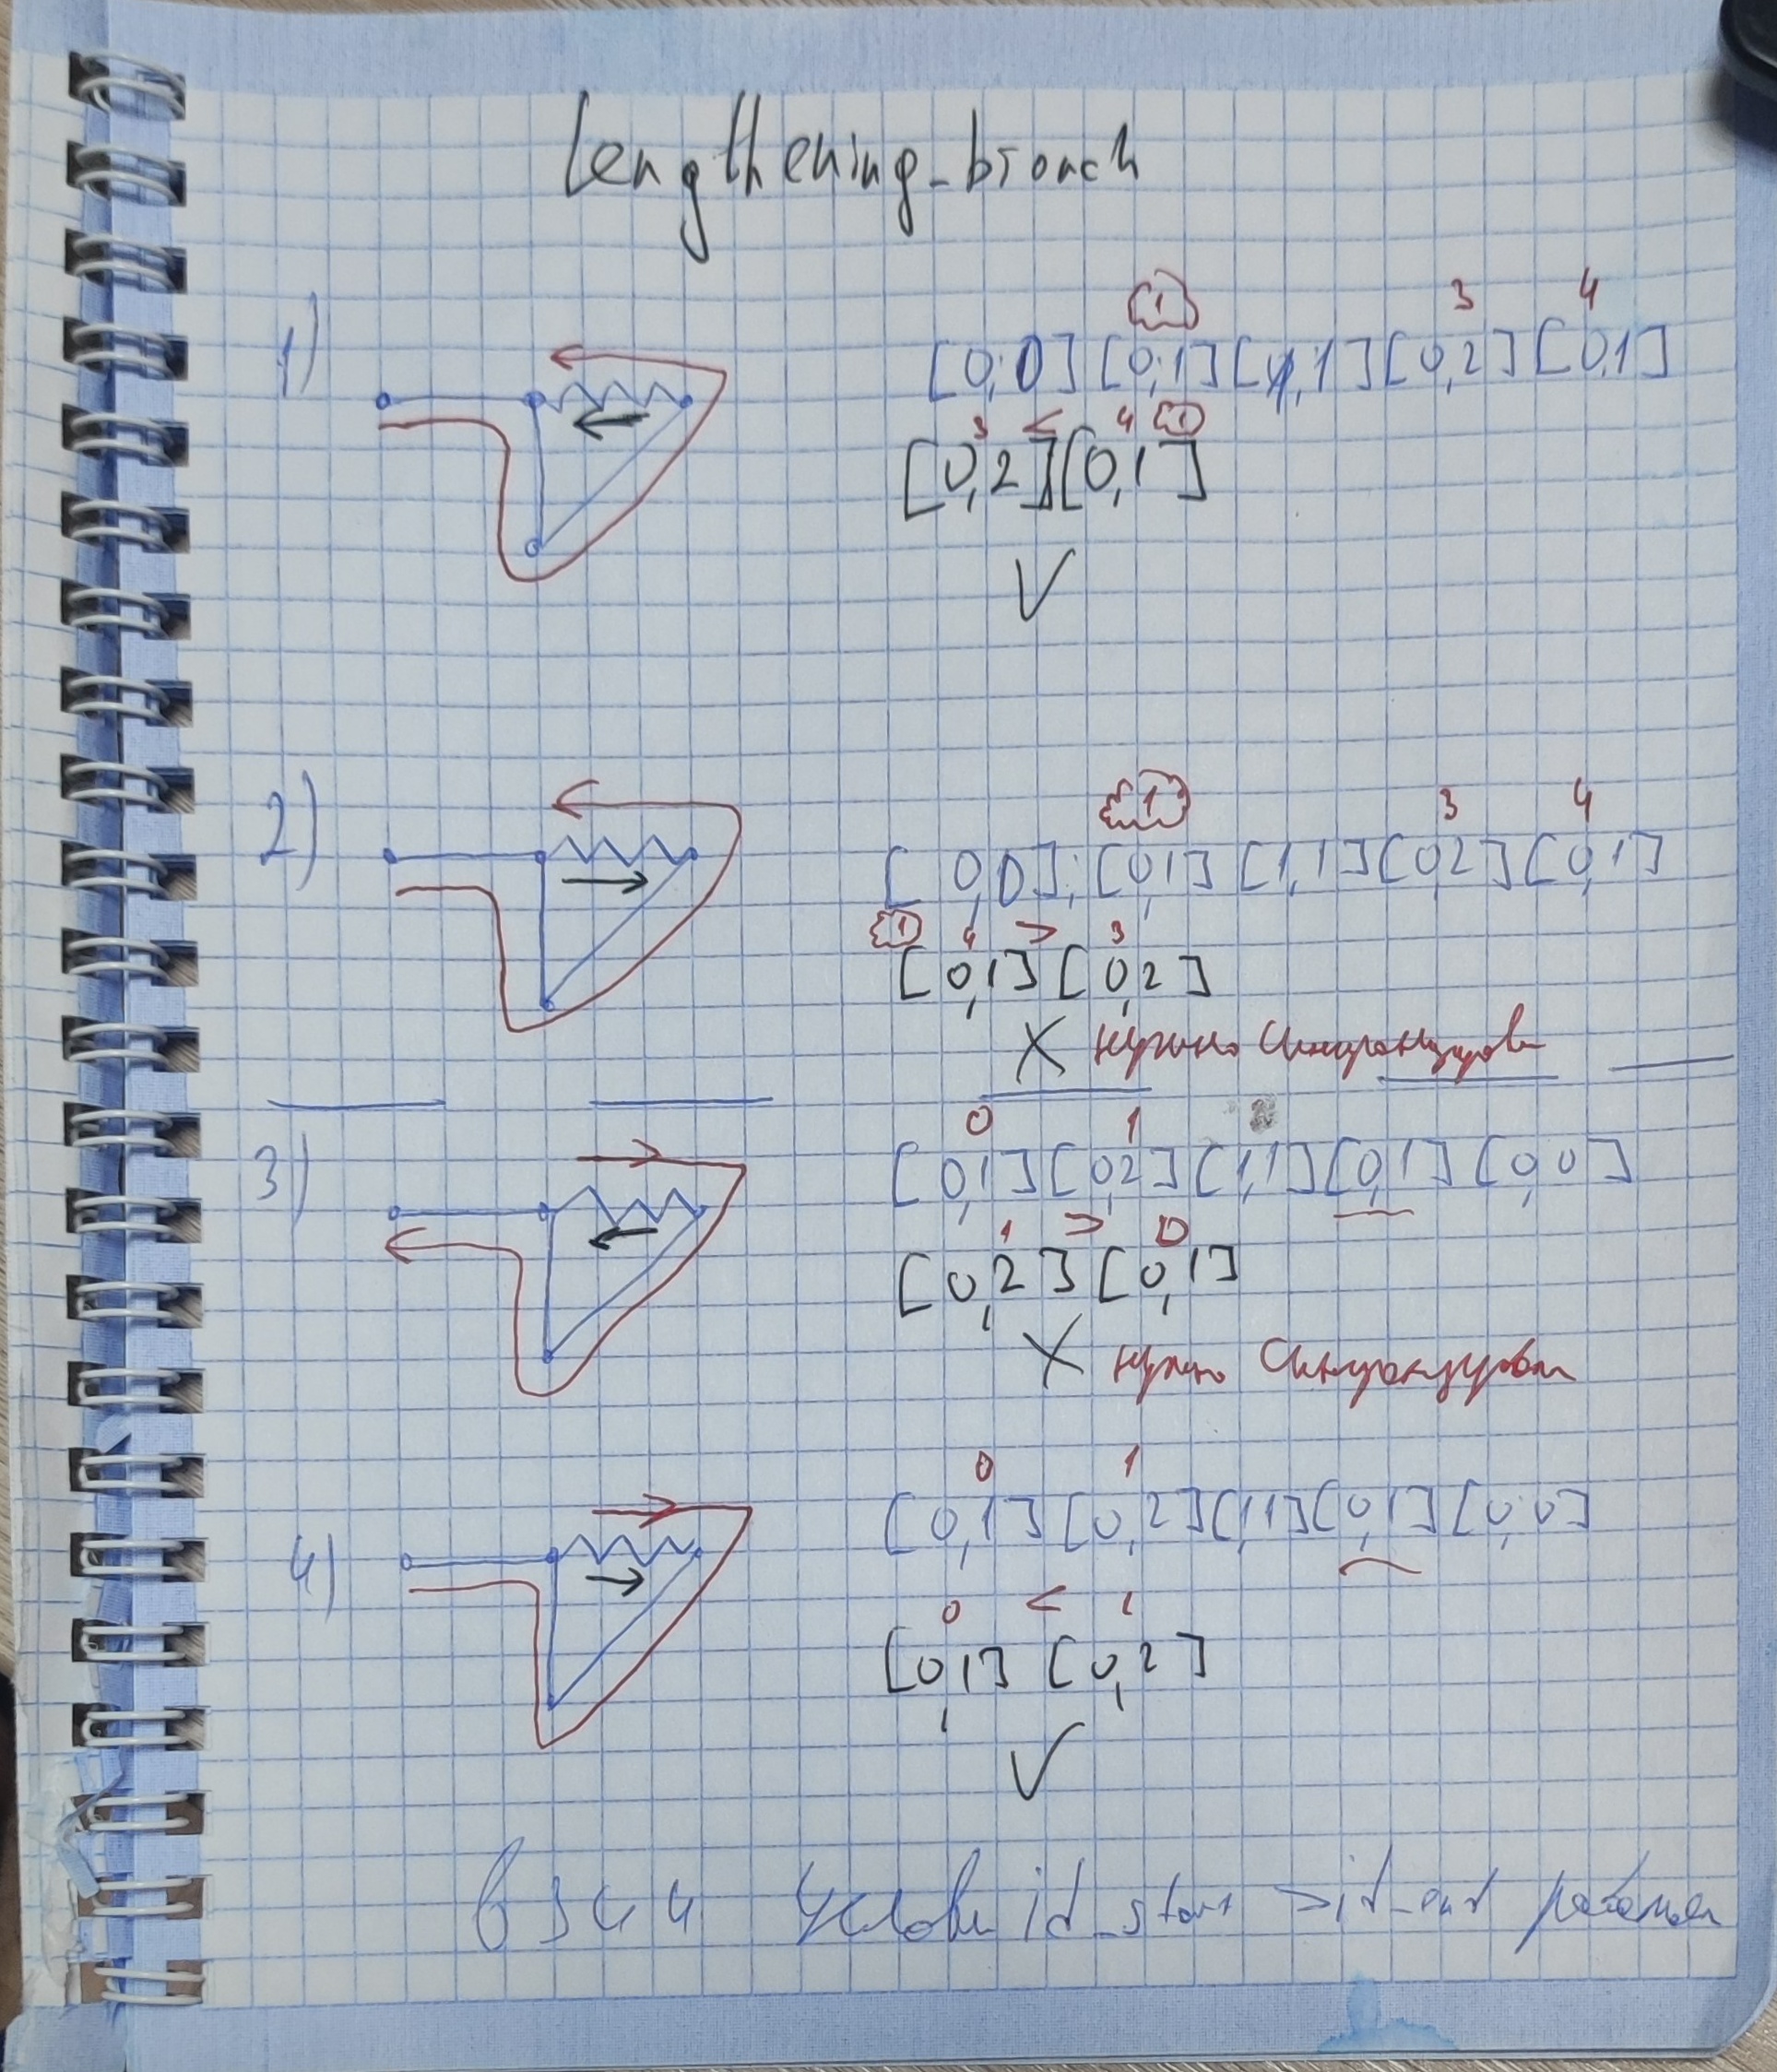 lengthening_branch
1)
1 3 4
[0,0] [0,1] [1,1] [0,2] [0,1]
3 < 4 1
[0,2] [0,1]
V
2)
1 3 4
[0,0]; [0,1] [1,1] [0,2] [0,1]
1 4 > 3
[0,1] [0,2]
X нужно синхронизировать
3)
0 1
[0,1] [0,2] [1,1] [0,1] [0,0]
1 > 0
[0,2] [0,1]
X нужно синхронизировать
4)
0 1
[0,1] [0,2] [1,1] [0,1] [0,0]
0 < 1
[0,1] [0,2]
V
в 3 и 4 услови id_start > id_end работает